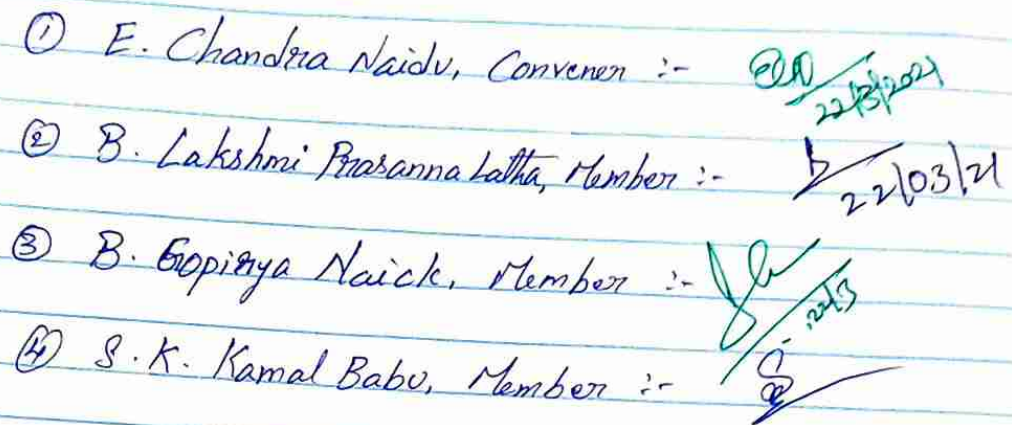 ① E. Chandra Naidu, Convener :-
22/3/2021
② B. Lakshmi Prasanna Latha, Member :-
22/03/21
③ B. Gopirya Naick, Member :-
22/3
④ S.K. Kamal Babu, Member :-